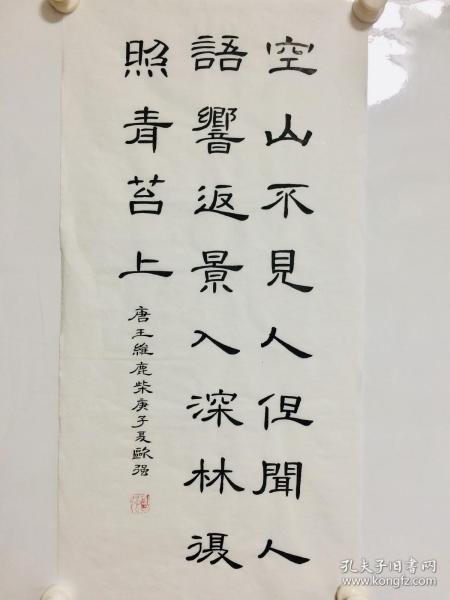 空山不見人但聞人
語響返景入深林復
照青苔上
唐王維鹿柴庚子夏歐强
孔夫子旧书网
www.kongfz.com